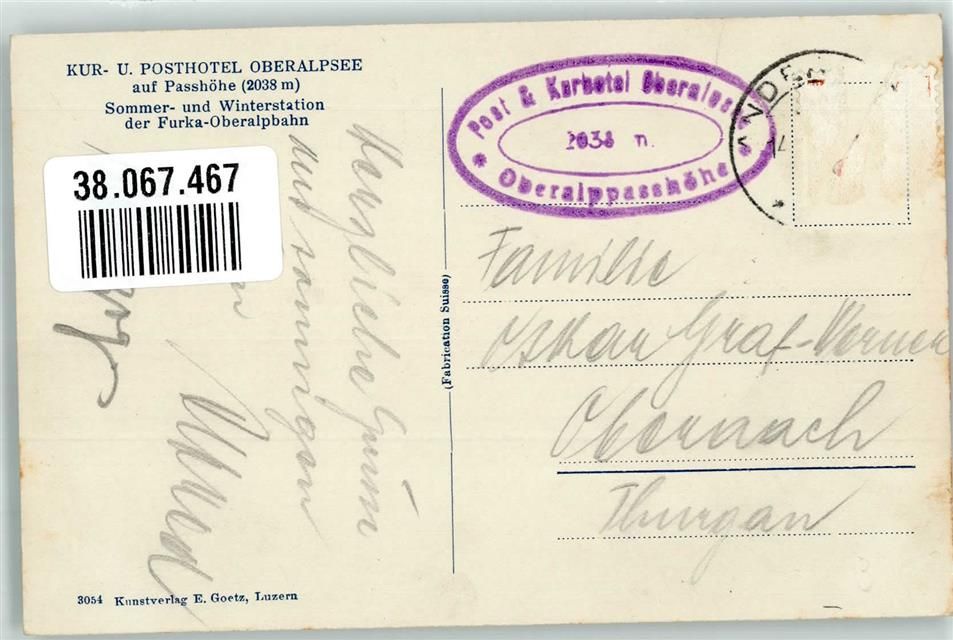 KUR- U. POSTHOTEL OBERALPSEE
auf Passhöhe (2038 m)
Sommer- und Winterstation
der Furka-Oberalpbahn
38.067.467
Post & Kurhotel Oberalpsee
2038 m.
* Oberalppasshöhe *
ANDE
14
Herzliche
aus sonnigen
(Fabrication Suisse)
Familie
Oskar Graf-
Oberaach
Thurgau
3054 Kunstverlag E. Goetz, Luzern